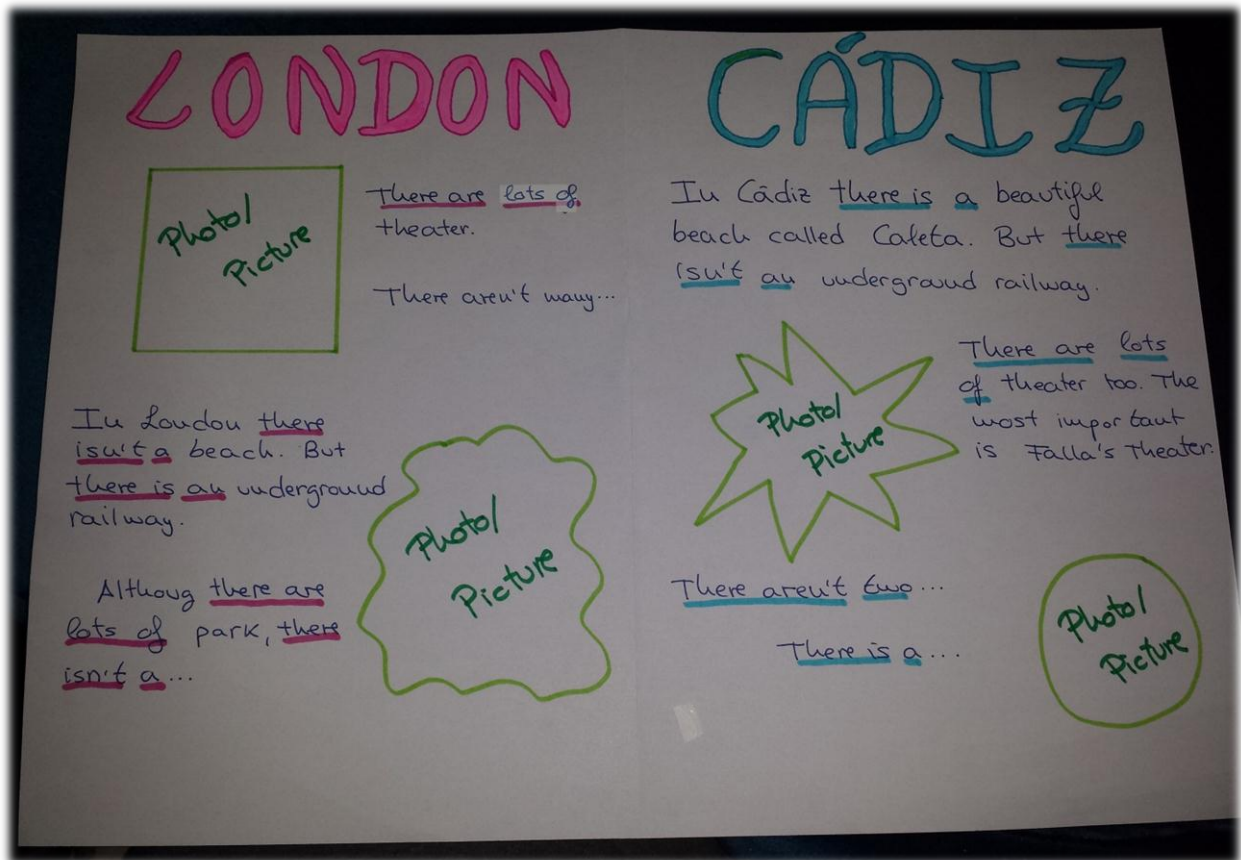 LONDON
Photo/
Picture
There are lots of
theater.
There aren't many...
In London there
isn't a beach. But
there is an underground
railway.
Photo/
Picture
Althoug there are
lots of park, there
isn't a...
CÁDIZ
In Cádiz there is a beautiful
beach called Caleta. But there
isn't an underground railway.
Photo/
Picture
There are lots
of theater too. The
most important
is Falla's Theater.
There aren't two...
There is a...
Photo/
Picture